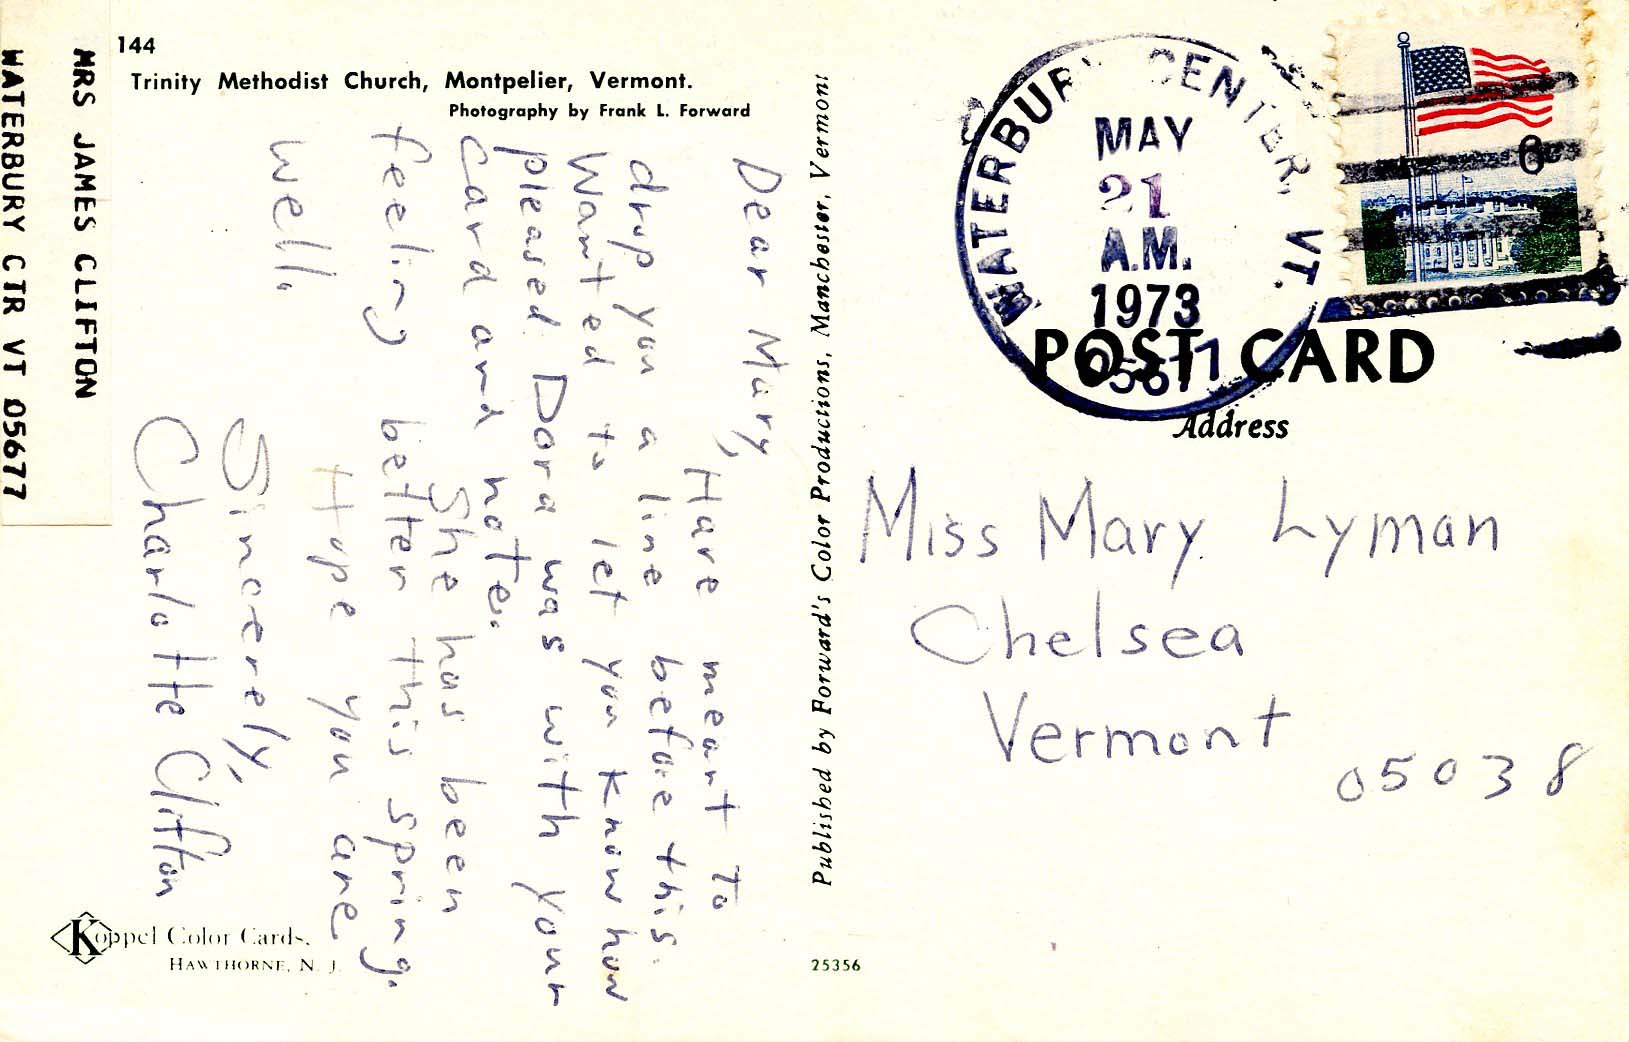 144
Trinity Methodist Church, Montpelier, Vermont.
Photography by Frank L. Forward
MRS JAMES CLIFTON
WATERBURY CTR VT 05677
Dear Mary,
Have meant to
drop you a line before this.
Wanted to let you know how
pleased Dora was with your
card and note.
She has been
feeling better this spring.
Hope you are
well.
Sincerely,
Charlotte Clifton
Koppel Color Cards,
HAWTHORNE, N. J.
Published by Forward's Color Productions, Manchester, Vermont
25356
WATERBURY CENTER, VT.
MAY
21
A.M.
1973
6¢
POST CARD
Address
Miss Mary Lyman
Chelsea
Vermont
05038